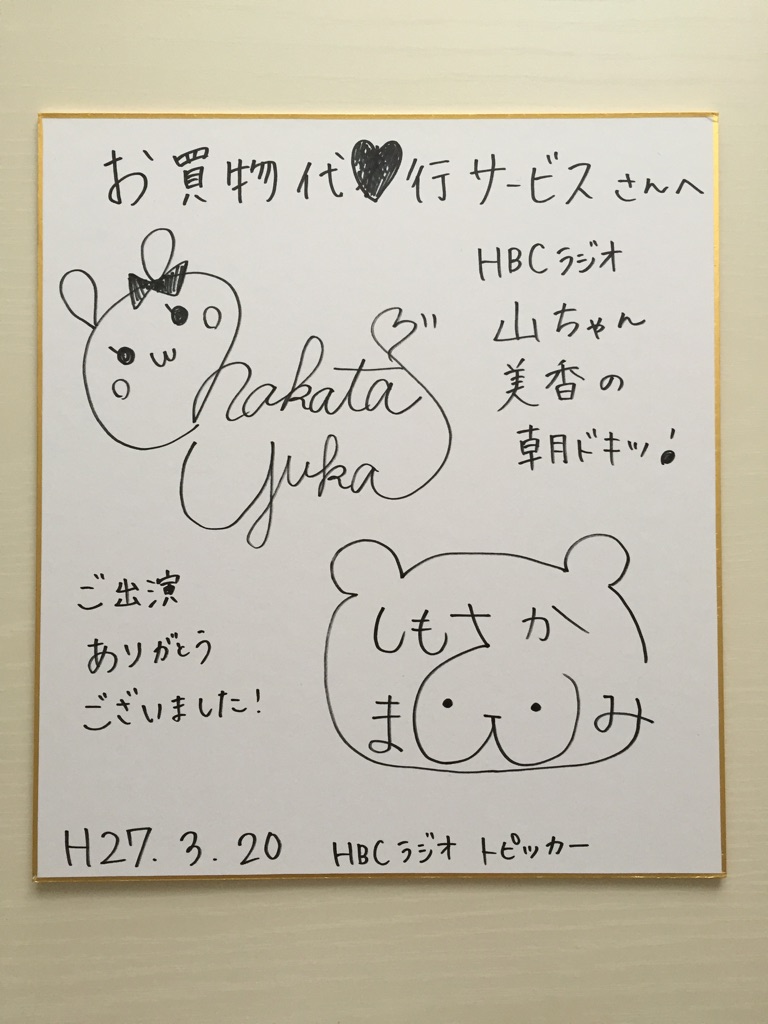 お買物代♥行サービスさんへ
HBCラジオ
山ちゃん
美香の
朝ドキッ!
nakata
yuka
しもさか
ま み
ご出演
ありがとう
ございました!
H27.3.20 HBCラジオ トピッカー